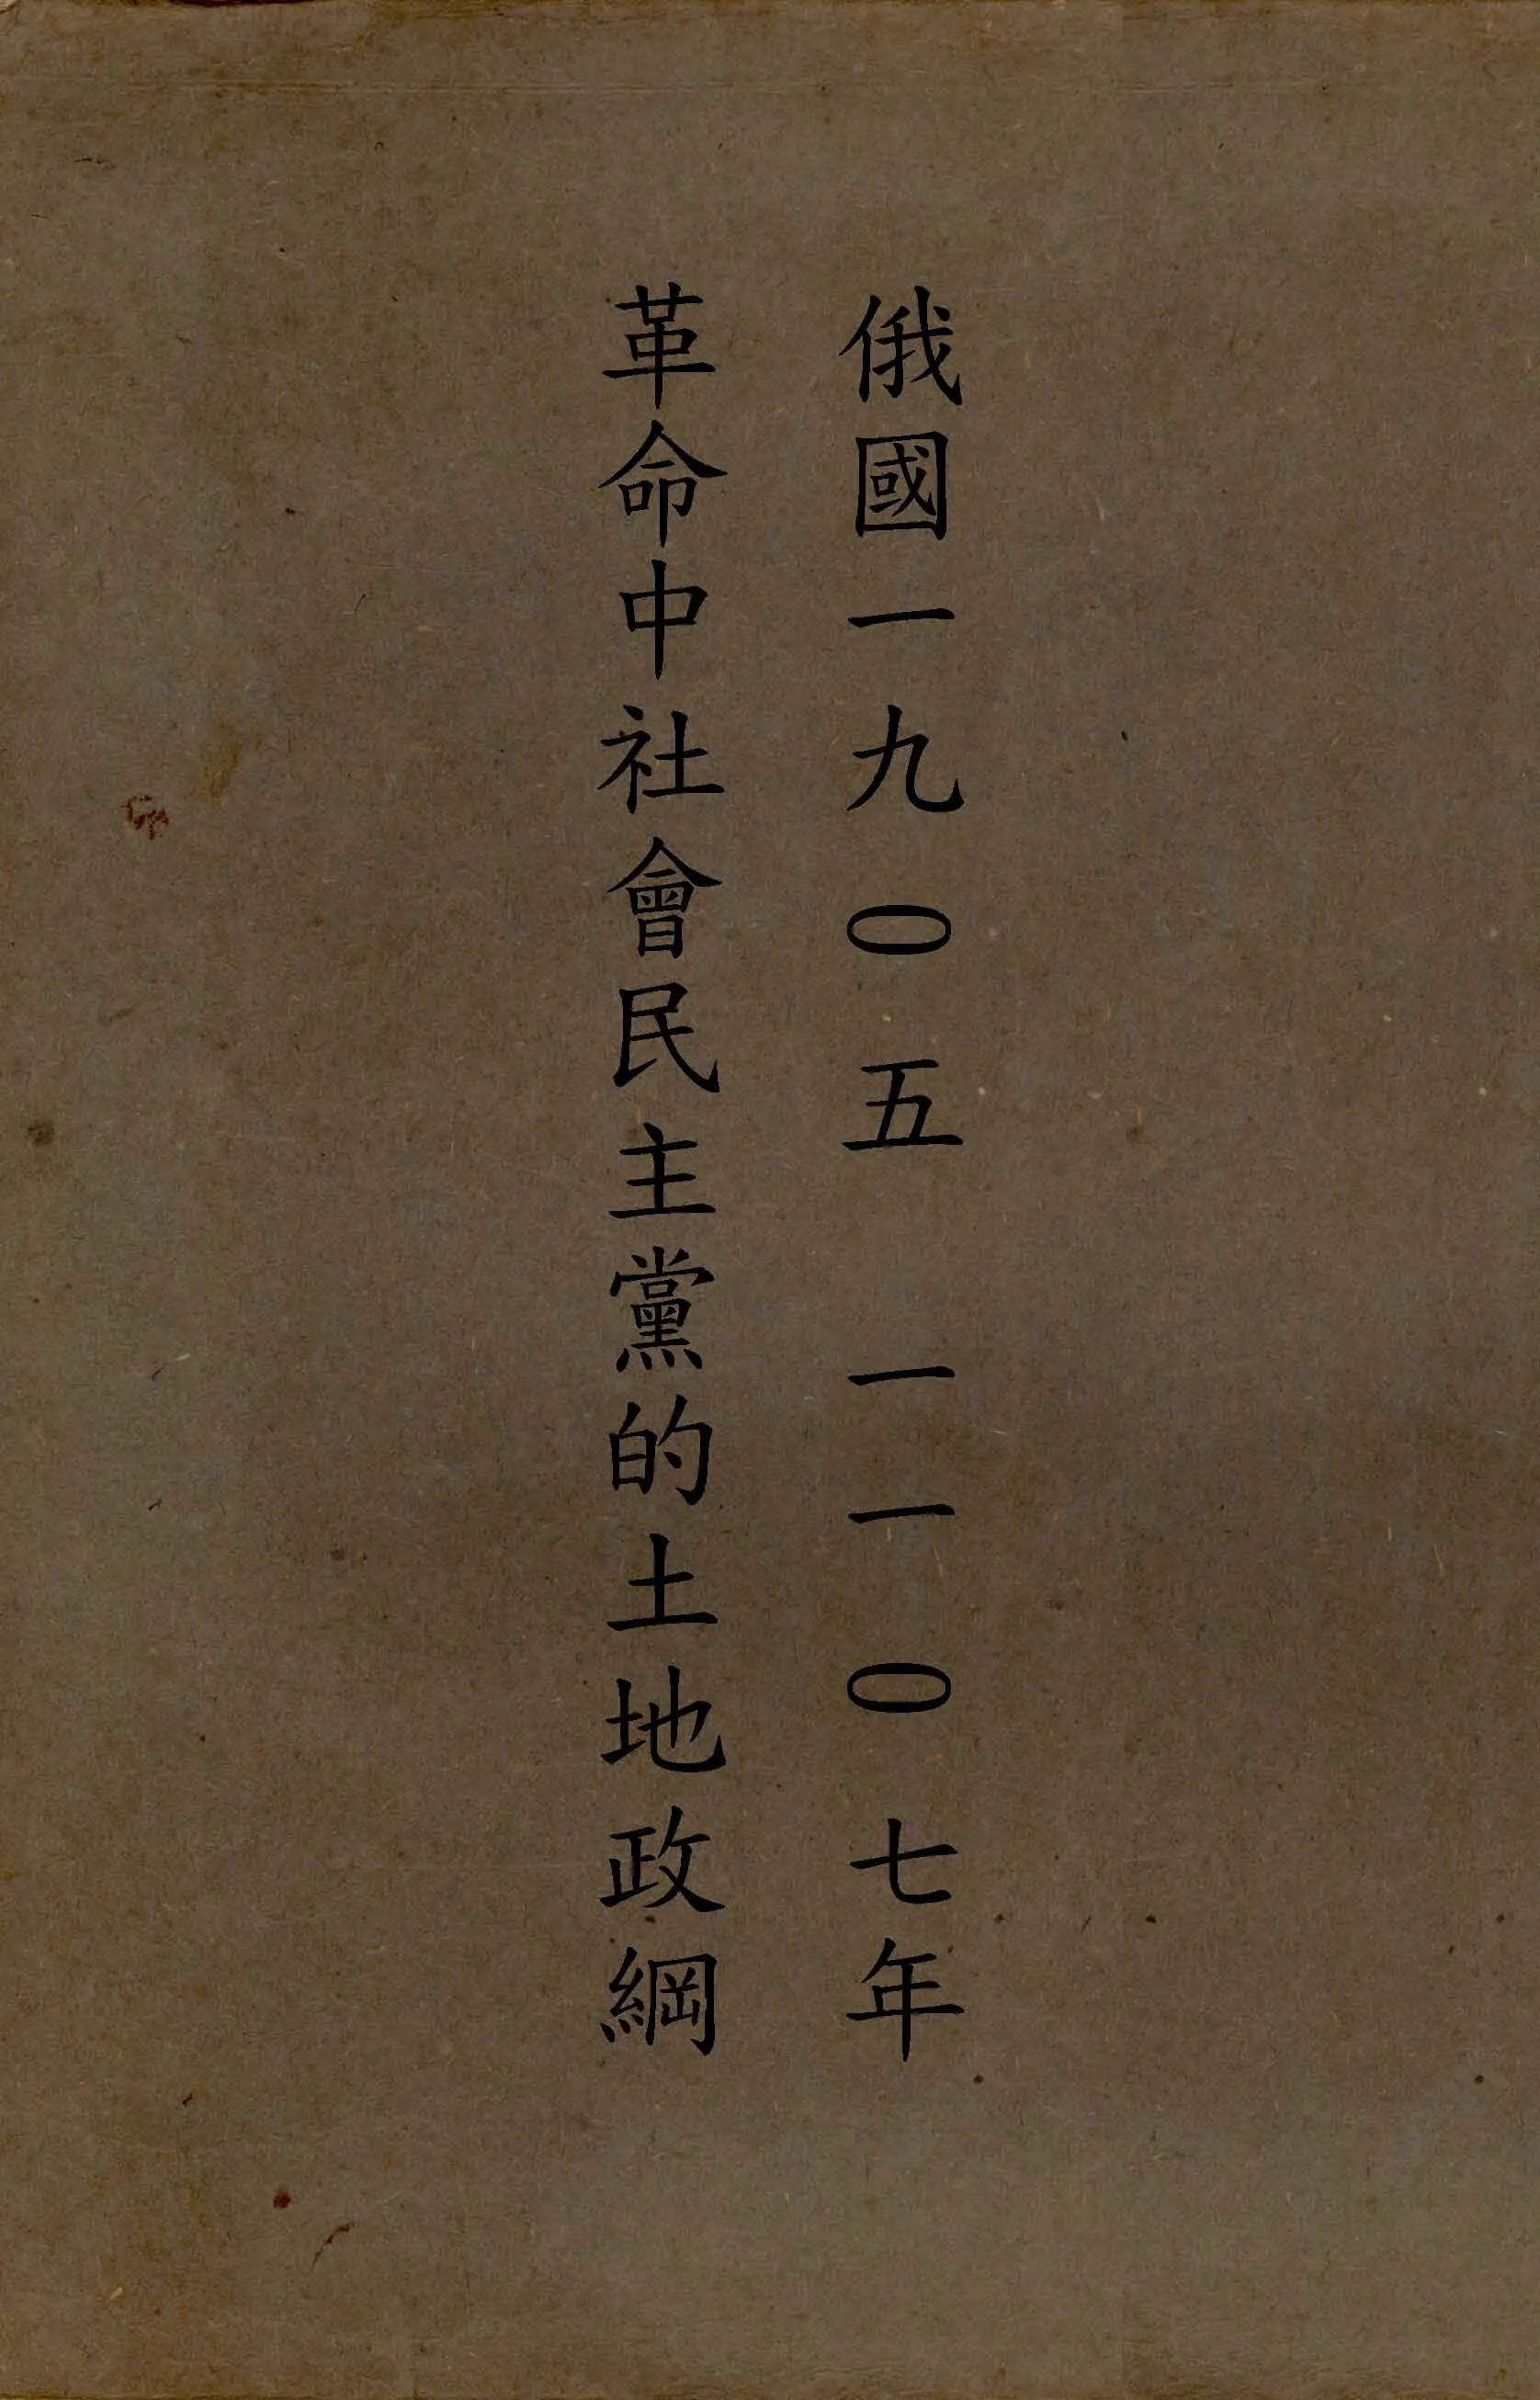 俄國一九〇五 一一〇七年
革命中社會民主黨的土地政綱